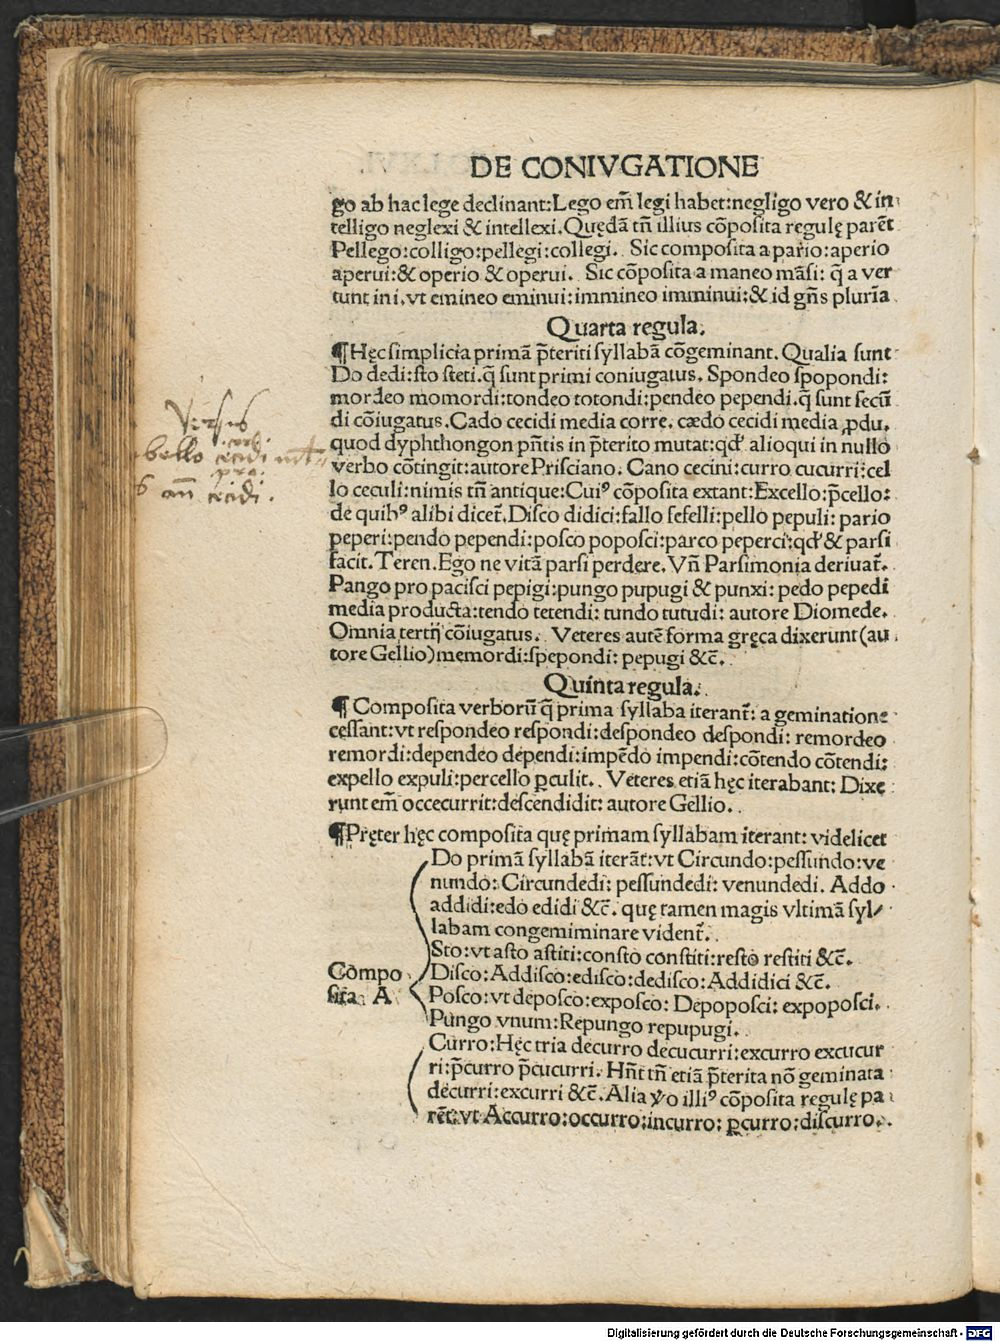 DE CONIVGATIONE
go ab hac lege declinant:Lego em̄ legi habet:negligo vero & in
telligo neglexi & intellexi.Quędā tñ illius cōposita regulę parēt
Pellego:colligo:pellegi:collegi. Sic composita a pario:aperio
aperui:& operio & operui. Sic cōposita a maneo māsi: q̄ a ver
tunt in i.vt emineo eminui:immineo imminui:& id gñs pluria
Quarta regula.
¶Hęc simplicia primā p̄teriti syllabā cōgeminant. Qualia sunt
Do dedi:sto steti.q̄ sunt primi coniugatus. Spondeo spopondi:
mordeo momordi:tondeo totondi:pendeo pependi.q̄ sunt secū
di cōiugatus.Cado cecidi media corre. cædo cecidi media ꝓdu.
quod dyphthongon pñtis in p̄terito mutat:qđ alioqui in nullo
verbo cōtingit:autore Prisciano. Cano cecini:curro cucurri:cel
lo ceculi:nimis tñ antique:Cuiꝰ cōposita extant:Excello:p̄cello:
de quibꝰ alibi dicet̄.Disco didici:fallo fefelli:pello pepuli: pario
peperi:pendo pependi:posco poposci:parco peperci:qđ & parsi
facit.Teren.Ego ne vitā parsi perdere.Vñ Parsimonia deriuat̄.
Pango pro pacisci pepigi:pungo pupugi & punxi: pedo pepedi
media producta:tendo tetendi: tundo tutudi: autore Diomede.
Omnia tertij cōiugatus. Veteres autē forma gręca dixerunt(au
tore Gellio)memordi:spepondi: pepugi &c̄.
Quinta regula.
¶ Composita verborū q̄ prima syllaba iterant̄: a geminatione
cessant:vt respondeo respondi:despondeo despondi: remordeo
remordi:dependeo dependi:impēdo impendi:cōtendo cōtendi:
expello expuli:percello ꝑculit. Veteres etiā hęc iterabant: Dixe
runt em̄ occecurrit:descendidit: autore Gellio.
¶Pręter hęc composita quę primam syllabam iterant: videlicet
Do primā syllabā iterāt:vt Circundo:pessundo:ve
nundo: Circundedi: pessundedi: venundedi. Addo
addidi:edo edidi &c̄. quę tamen magis vltimā syl
labam congemiminare vident̄.
Sto:vt asto astiti:consto constiti:resto restiti &c̄.
Cōmpo
sita A
Disco:Addisco:edisco:dedisco:Addidici &c̄.
Posco:vt deposco:exposco: Depoposci: expoposci.
Pungo vnum:Repungo repupugi.
Curro:Hęc tria decurro decucurri:excurro excucur
ri:p̄curro p̄cucurri. Hñt tñ etiā p̄terita nō geminata
decurri:excurri &c̄.Alia ꝟo illiꝰ cōposita regulę pa
rēt:vt Accurro:occurro:incurro: ꝑcurro:discurro.
Versus
bello cecidi
cecidi.
Digitalisierung gefördert durch die Deutsche Forschungsgemeinschaft - DFG